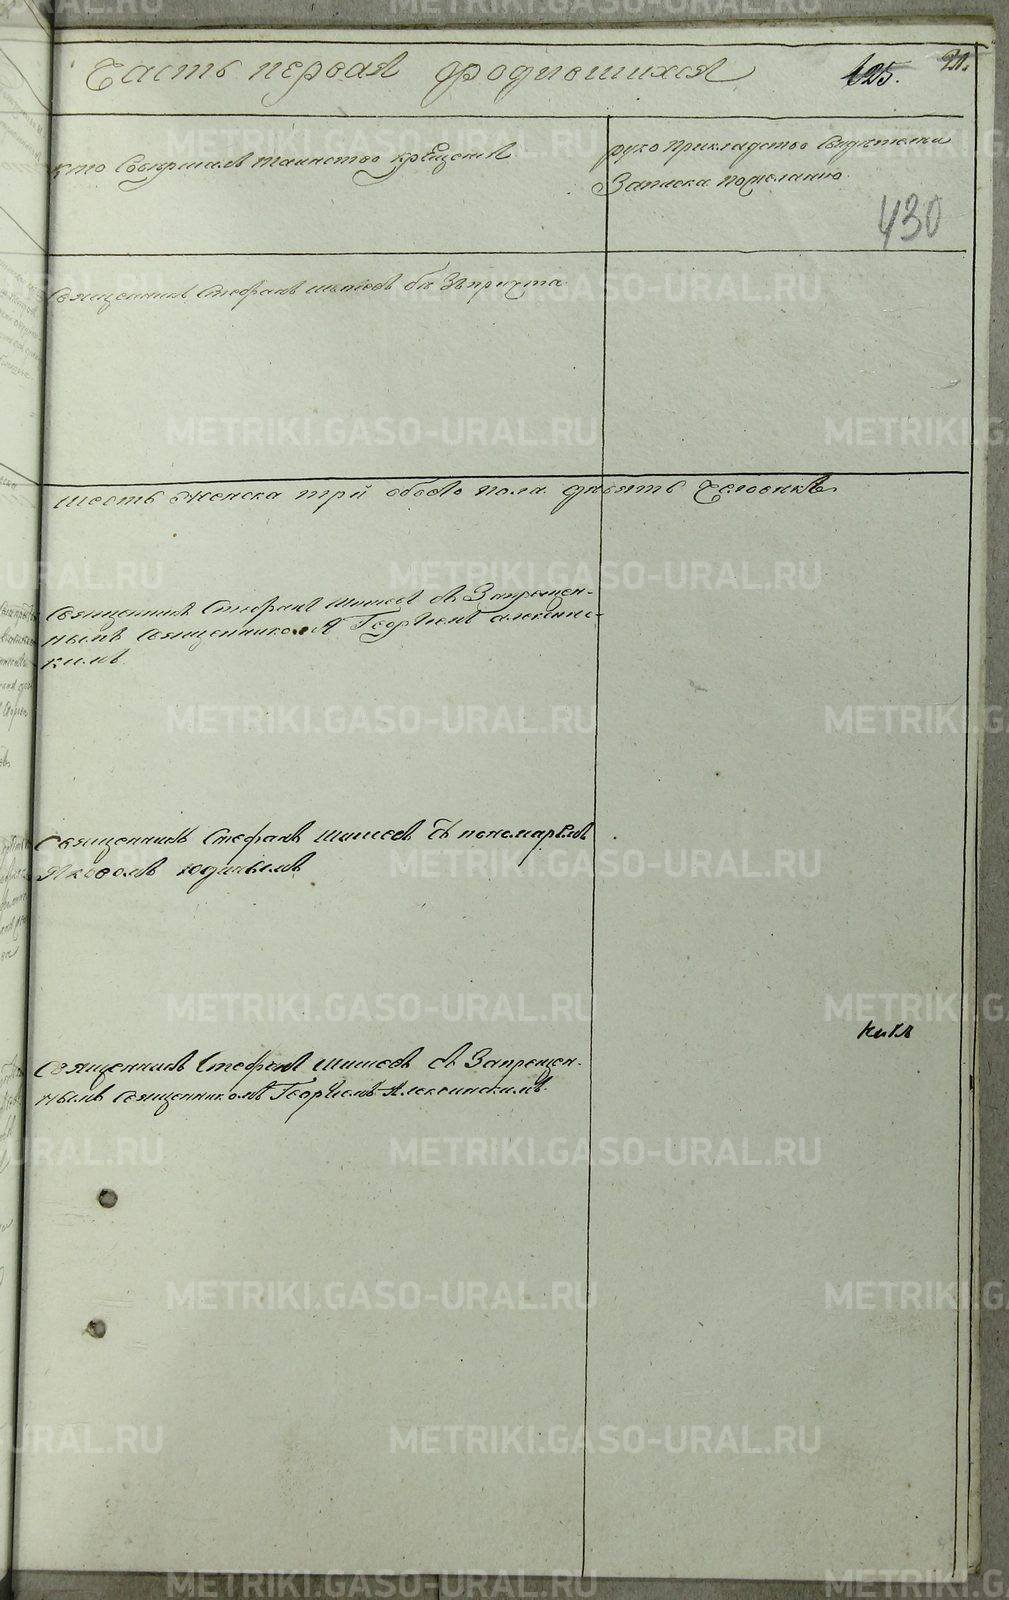 Часть первая о родившихся 125. 21.
кто Совершалъ таинство крещенія
руко прикладство Свидетелей
Записка пожеланію
430
Священникъ Стефанъ Шишевъ безъ причта
шесть женска трй обоего пола дѣвять Человекъ
Священникъ Стефанъ Шишевъ съ Запрещен-
нымъ Священникомъ Георгіемъ алексинс-
кимъ
Священникъ Стефанъ Шишевъ съ пономаремъ
Яковомъ юдинымъ
Священникъ Стефанъ Шишевъ съ Запрещен-
нымъ священникомъ Георгіемъ Алексинскимъ
METRIKI.GASO-URAL.RU